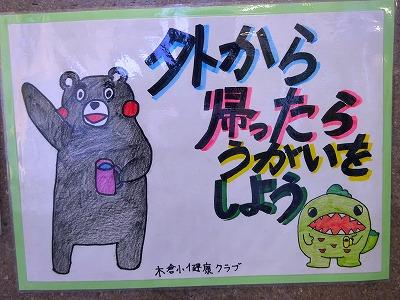 外から
帰ったら
うがいを
しよう
木倉小健康クラブ